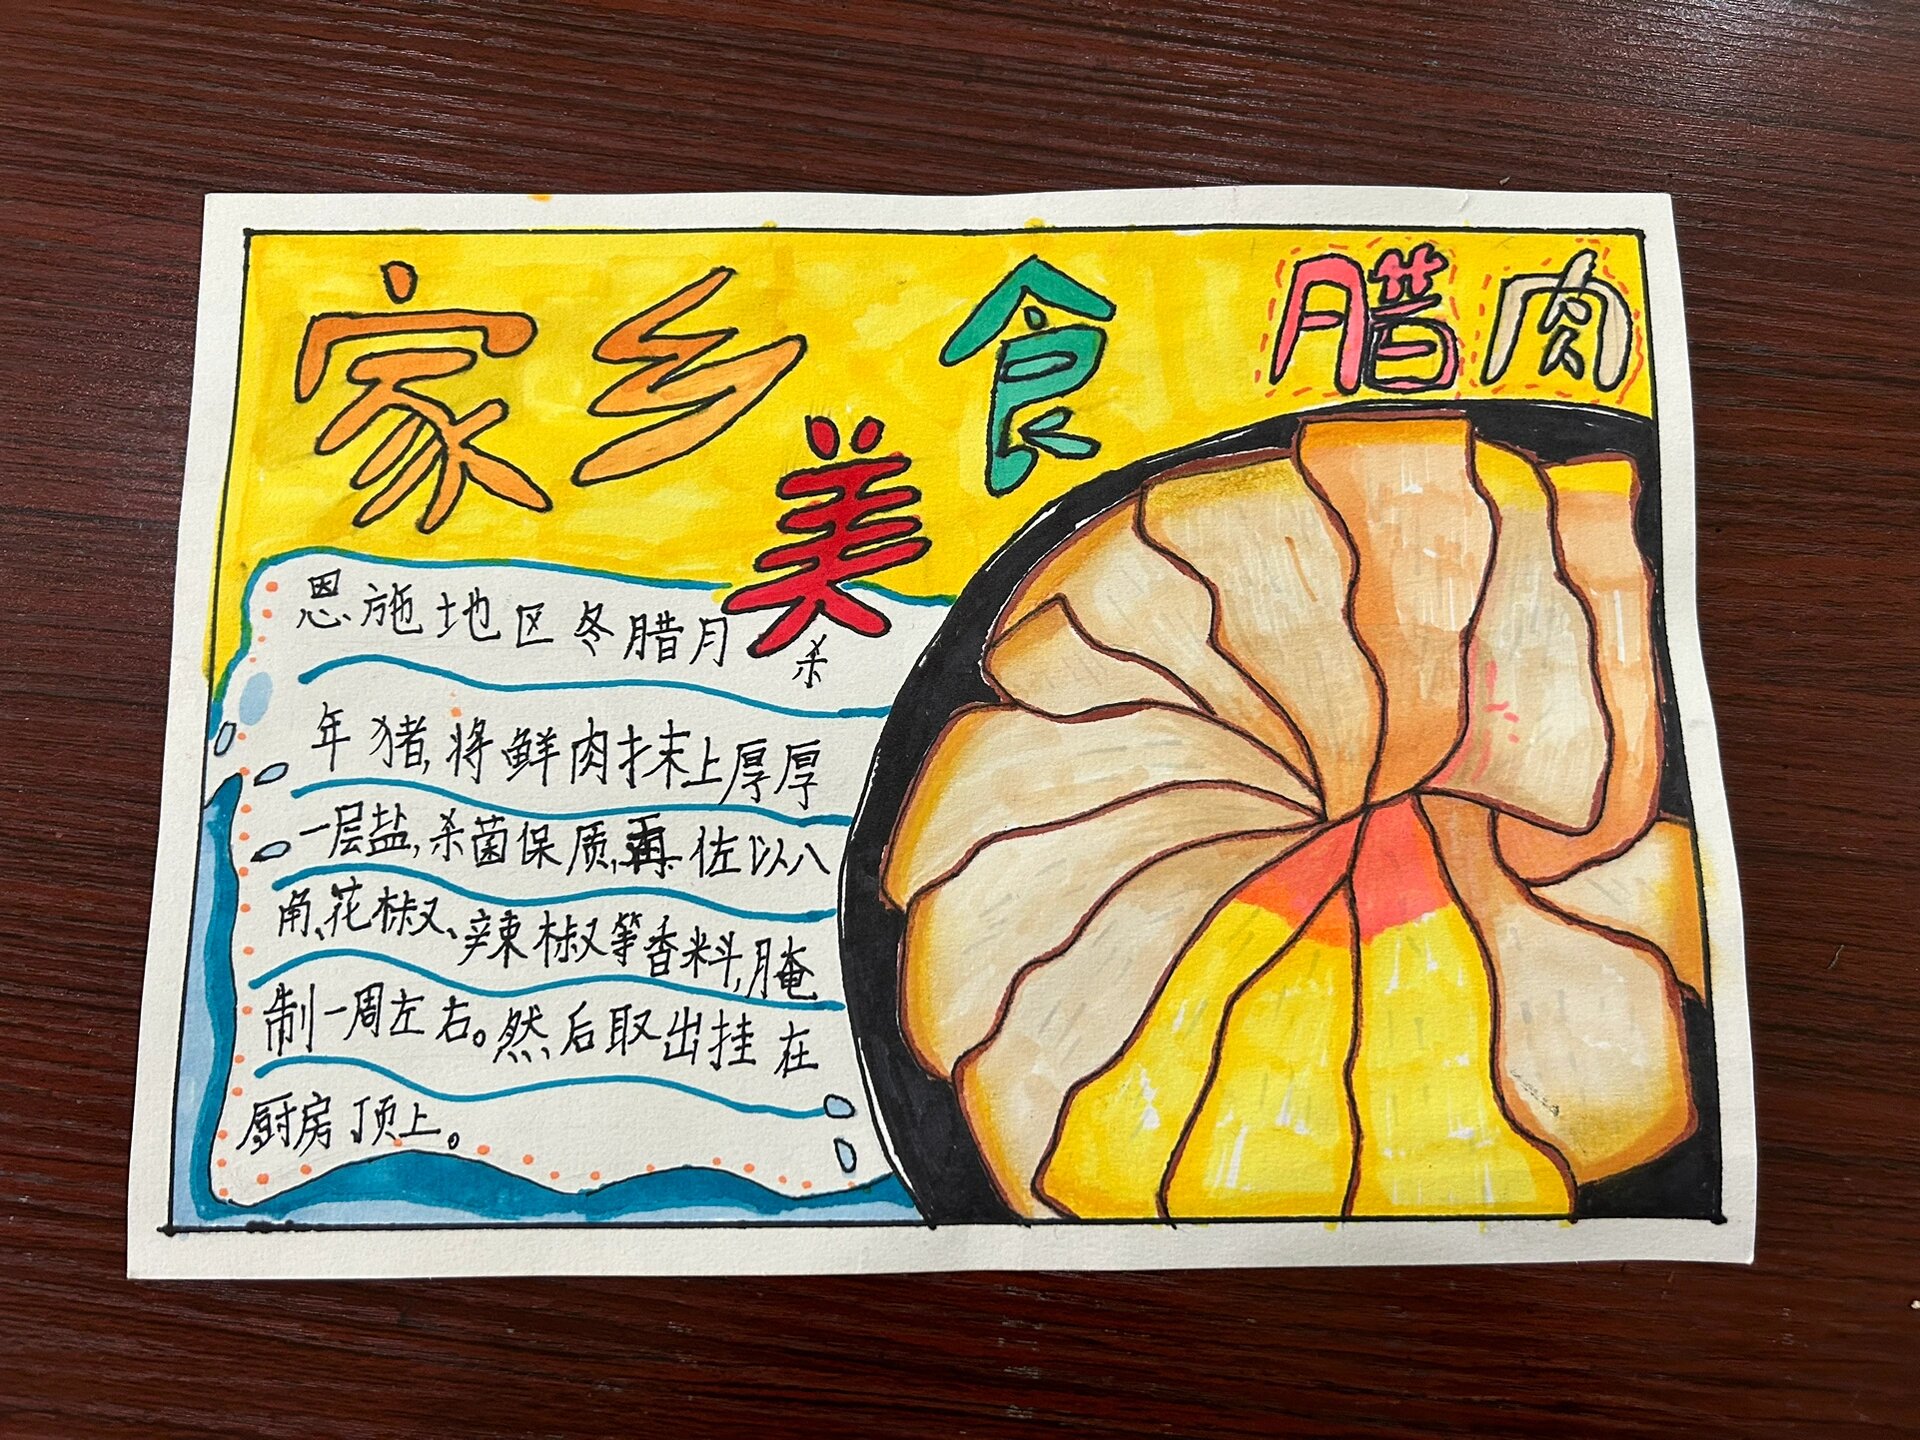 家乡美食 腊肉
恩施地区冬腊月杀
年猪,将鲜肉抹上厚厚
一层盐,杀菌保质,再佐以八
角、花椒、辣椒等香料,腌
制一周左右。然后取出挂在
厨房顶上。